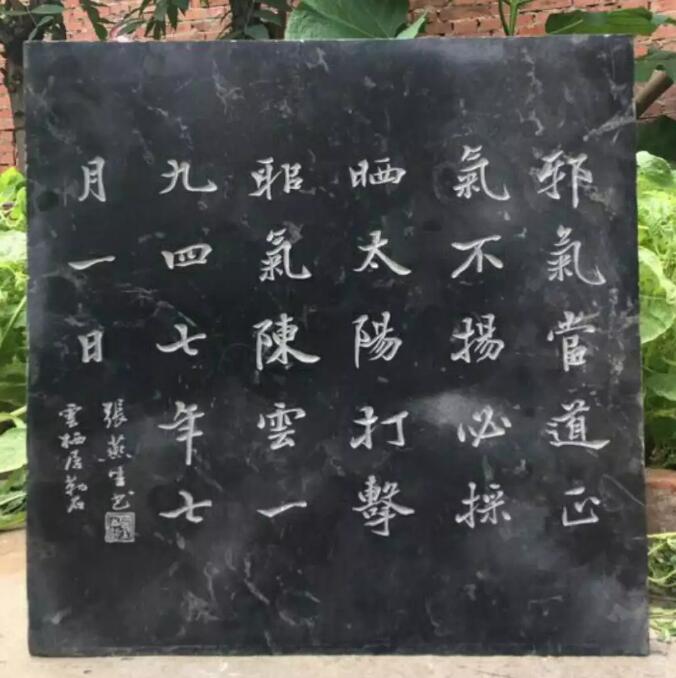 邪氣當道正
氣不揚必採
晒太陽打擊
耶氣陳雲一
九四七年七
月一日
張燕生书
雲栖居勒石